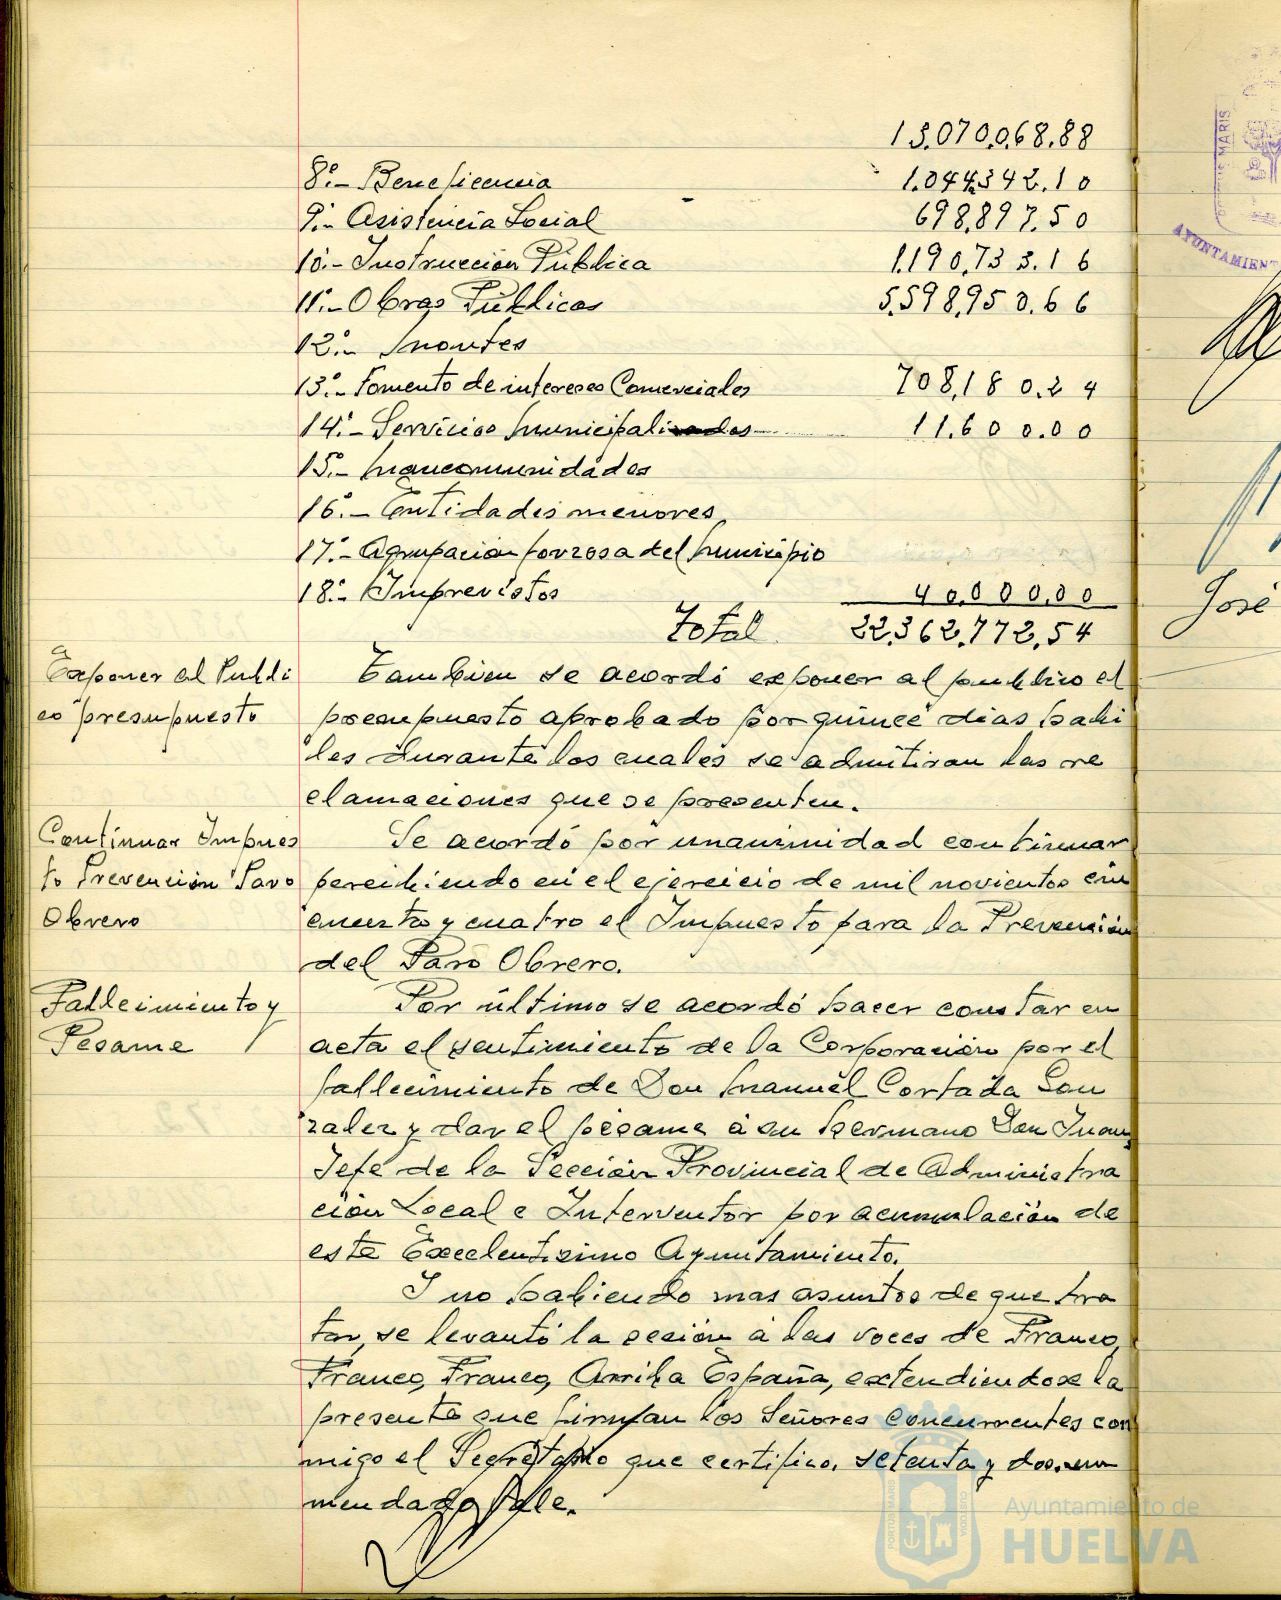 13.070.068.88
8º.- Beneficencia 1.044.342.10
9º.- Asistencia Social 698.897.50
10º.- Instruccion Pública 1.190.733.16
11º.- Obras Públicas 5.598.950.66
12º.- Montes
13º.- Fomento de intereses Comerciales 708.180.24
14º.- Servicios Municipalizados 11.600.00
15º.- Mancomunidades
16º.- Entidades menores
17º.- Agrupación forzosa del Municipio
18º.- Imprevistos 40.000.00
Total 22.362.772.54
Exponer al Públi
co presupuesto
Tambien se acordó exponer al publico el
presupuesto aprobado por quince dias habi
les durante los cuales se admitiran las re
clamaciones que se presenten.
Continuar Impues
to Prevención Paro
Obrero
Se acordó por unanimidad continuar
percibiendo en el ejercicio de mil novientos cin
cuenta y cuatro el Impuesto para la Prevención
del Paro Obrero.
Fallecimiento y
Pesame
Por último se acordó hacer constar en
acta el sentimiento de la Corporación por el
fallecimiento de Don Manuel Cortada Gon
zalez y dar el pésame a su hermano Don Juan,
Jefe de la Sección Provincial de Administra
ción Local e Interventor por acumulación de
este Excelentisimo Ayuntamiento.
Y no habiendo mas asuntos de que tra
tar, se levantó la sesión a las voces de Franco,
Franco, Franco, Arriba España, extendiendose la
presente que firman los Señores concurrentes con
migo el Secretario que certifico. setenta y dos. en
mendado. Vale.
AYUNTAMIENT
MARIS
José
PORTUS MARIS
CUSTODIA
Ayuntamiento de
HUELVA